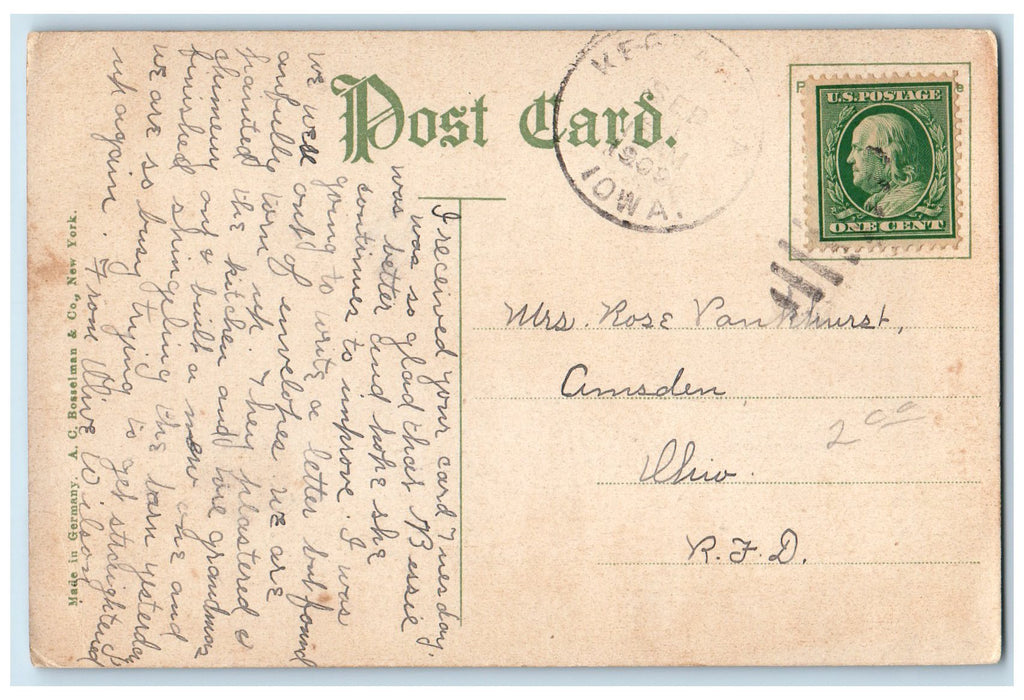 Post Card.
KEO
SEP
1909
IOWA.
U.S. POSTAGE
ONE CENT
Mrs. Rose Vankhurst,
Amsden,
Ohio.
R.F.D.
2 00
I received your card Tuesday.
was so glad that Bessie
was better and hope she
continues to improve. I was
going to write a letter but found
we were out of envelopes we are
awfully torn up. They plastered &
painted the kitchen and tore grandmas
chimney out & built a new one and
finished shingling the barn yesterday
we are so busy trying to get straightened
up again. From Olive Wilson
Made in Germany. A. C. Bosselman & Co., New York.